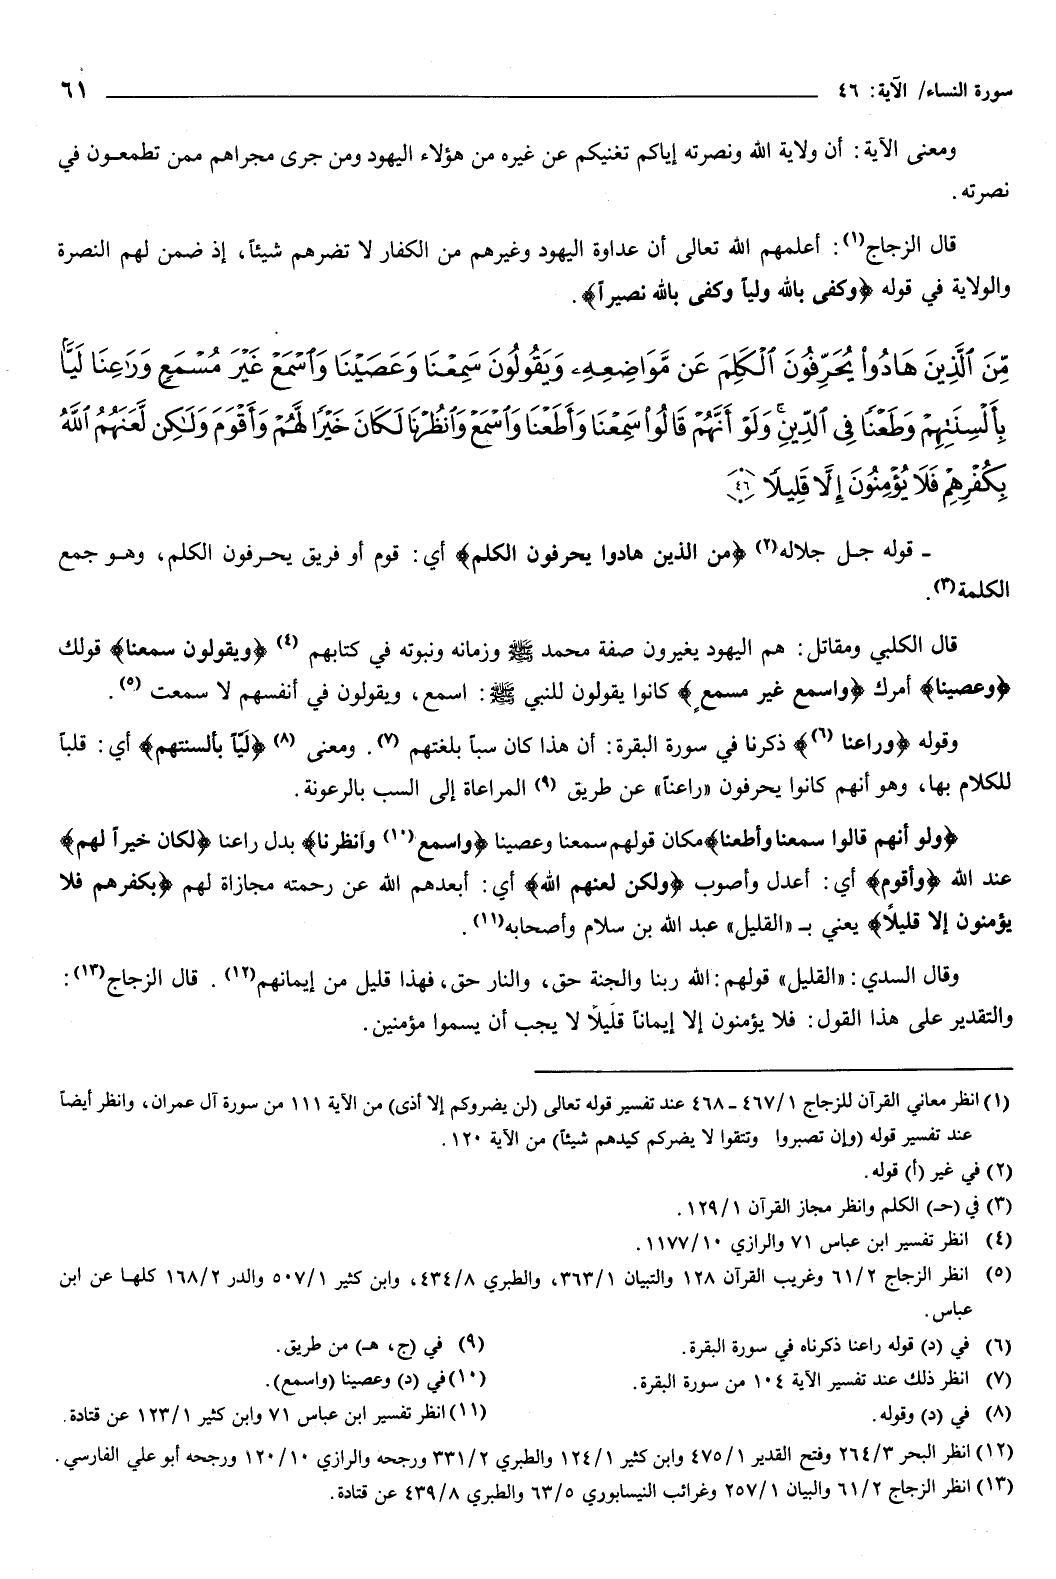 سورة النساء/ الآية: ٤٦ ٦١
ومعنى الآية: أن ولاية الله ونصرته إياكم تغنيكم عن غيره من هؤلاء اليهود ومن جرى مجراهم ممن تطمعون في
نصرته.
قال الزجاج(١): أعلمهم الله تعالى أن عداوة اليهود وغيرهم من الكفار لا تضرهم شيئاً، إذ ضمن لهم النصرة
والولاية في قوله ﴿وكفى بالله ولياً وكفى بالله نصيراً﴾.
مِّنَ ٱلَّذِينَ هَادُوا۟ يُحَرِّفُونَ ٱلْكَلِمَ عَن مَّوَاضِعِهِۦ وَيَقُولُونَ سَمِعْنَا وَعَصَيْنَا وَٱسْمَعْ غَيْرَ مُسْمَعٍ وَرَٰعِنَا لَيًّۢا
بِأَلْسِنَتِهِمْ وَطَعْنًا فِى ٱلدِّينِ ۚ وَلَوْ أَنَّهُمْ قَالُوا۟ سَمِعْنَا وَأَطَعْنَا وَٱسْمَعْ وَٱنظُرْنَا لَكَانَ خَيْرًا لَّهُمْ وَأَقْوَمَ وَلَٰكِن لَّعَنَهُمُ ٱللَّهُ
بِكُفْرِهِمْ فَلَا يُؤْمِنُونَ إِلَّا قَلِيلًا ٤٦
- قوله جل جلاله(٢) ﴿من الذين هادوا يحرفون الكلم﴾ أي: قوم أو فريق يحرفون الكلم، وهو جمع
الكلمة(٣).
قال الكلبي ومقاتل: هم اليهود يغيرون صفة محمد ﷺ وزمانه ونبوته في كتابهم (٤) ﴿ويقولون سمعنا﴾ قولك
﴿وعصينا﴾ أمرك ﴿واسمع غير مسمعٍ﴾ كانوا يقولون للنبي ﷺ: اسمع، ويقولون في أنفسهم لا سمعت (٥).
وقوله ﴿وراعنا (٦)﴾ ذكرنا في سورة البقرة: أن هذا كان سباً بلغتهم (٧). ومعنى (٨) ﴿لَيّاً بألسنتهم﴾ أي: قلباً
للكلام بها، وهو أنهم كانوا يحرفون «راعناً» عن طريق (٩) المراعاة إلى السب بالرعونة.
﴿ولو أنهم قالوا سمعنا وأطعنا﴾مكان قولهم سمعنا وعصينا ﴿واسمع(١٠) وانظرنا﴾ بدل راعنا ﴿لكان خيراً لهم﴾
عند الله ﴿وأقوم﴾ أي: أعدل وأصوب ﴿ولكن لعنهم الله﴾ أي: أبعدهم الله عن رحمته مجازاة لهم ﴿بكفرهم فلا
يؤمنون إلا قليلًا﴾ يعني بـ «القليل» عبد الله بن سلام وأصحابه(١١).
وقال السدي: «القليل» قولهم: الله ربنا والجنة حق، والنار حق، فهذا قليل من إيمانهم(١٢). قال الزجاج(١٣):
والتقدير على هذا القول: فلا يؤمنون إلا إيماناً قليلًا لا يجب أن يسموا مؤمنين.
(١) انظر معاني القرآن للزجاج ٤٦٧/١ - ٤٦٨ عند تفسير قوله تعالى (لن يضروكم إلا أذى) من الآية ١١١ من سورة آل عمران، وانظر أيضاً
عند تفسير قوله (وإن تصبروا وتتقوا لا يضركم كيدهم شيئاً) من الآية ١٢٠.
(٢) في غير (أ) قوله.
(٣) في (حـ) الكلم وانظر مجاز القرآن ١٢٩/١.
(٤) انظر تفسير ابن عباس ٧١ والرازي ١١٧٧/١٠.
(٥) انظر الزجاج ٦١/٢ وغريب القرآن ١٢٨ والتبيان ٣٦٣/١، والطبري ٤٣٤/٨، وابن كثير ٥٠٧/١ والدر ١٦٨/٢ كلها عن ابن
عباس.
(٦) في (د) قوله راعنا ذكرناه في سورة البقرة.
(٧) انظر ذلك عند تفسير الآية ١٠٤ من سورة البقرة.
(٨) في (د) وقوله.
(٩) في (ج، هـ) من طريق.
(١٠) في (د) وعصينا (واسمع).
(١١) انظر تفسير ابن عباس ٧١ وابن كثير ١٢٣/١ عن قتادة.
(١٢) انظر البحر ٢٦٤/٣ وفتح القدير ٤٧٥/١ وابن كثير ١٢٤/١ والطبري ٣٣١/٢ ورجحه والرازي ١٢٠/١٠ ورجحه أبو علي الفارسي.
(١٣) انظر الزجاج ٦١/٢ والبيان ٢٥٧/١ وغرائب النيسابوري ٦٣/٥ والطبري ٤٣٩/٨ عن قتادة.